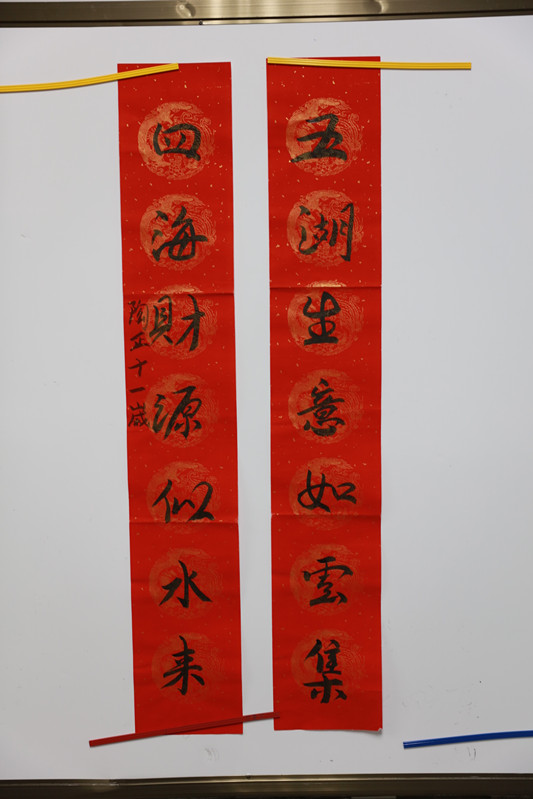 五湖生意如雲集
四海財源似水来
陶正十一歲